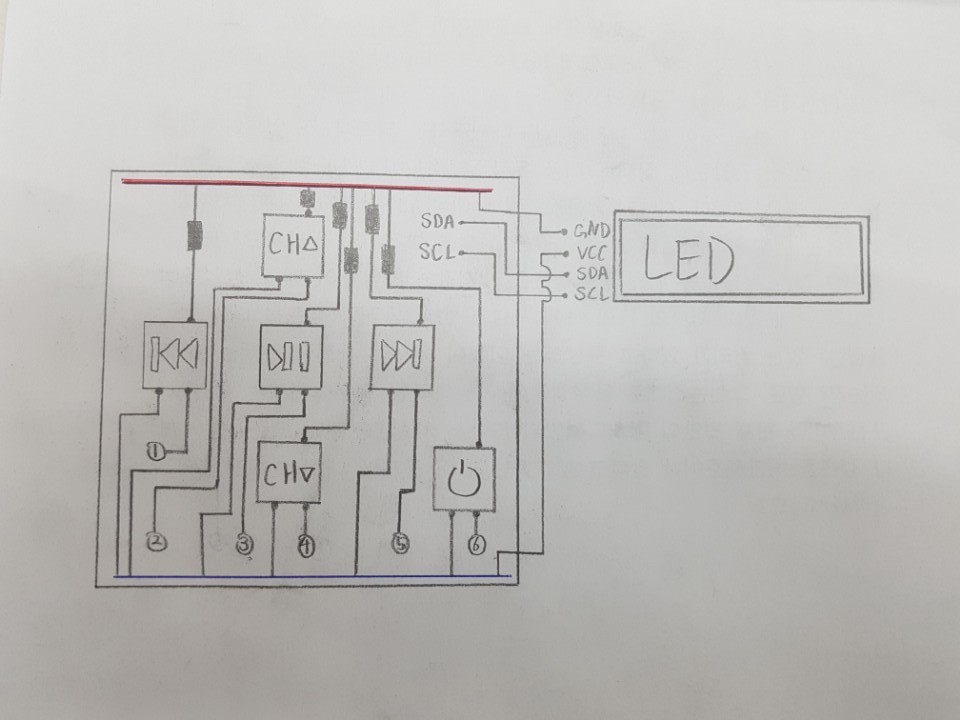 CH△
SDA
SCL
GND
VCC
SDA
SCL
LED
CH▽
①
②
③
④
⑤
⑥